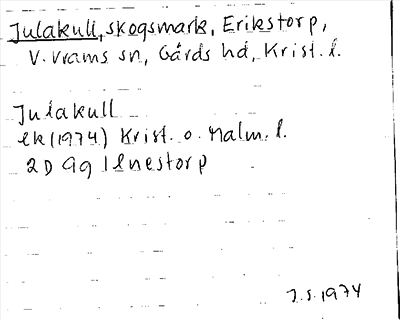 Julakull, skogsmark, Erikstorp,
V. Vrams sn, Gärds hd, Krist. l.
Julakull
ek (1974) Krist. o. Malm. l.
2D 9g Ilnestorp
J.S. 1974